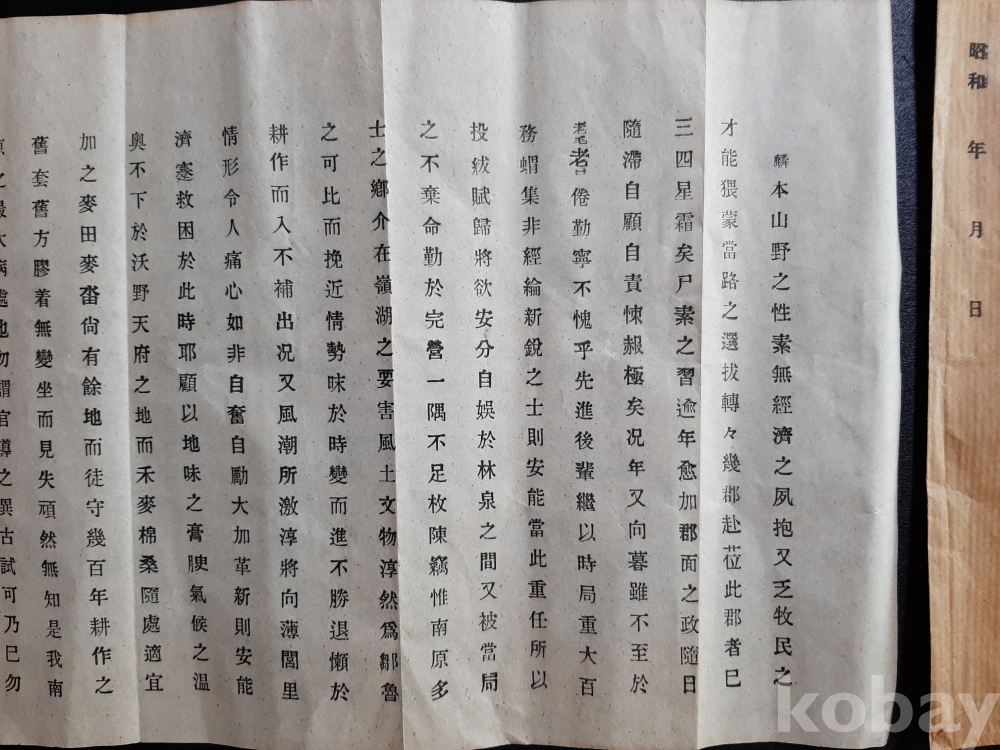 昭和 年 月 日
麟本山野之性素無經濟之夙抱又乏牧民之
才能猥蒙當路之選拔轉々幾郡赴莅此郡者巳
三四星霜矣尸素之習逾年愈加郡面之政隨日
隨滯自顧自責悚赧極矣况年又向暮雖不至於
耄耆倦勤寧不愧乎先進後輩繼以時局重大百
務蝟集非經綸新銳之士則安能當此重任所以
投紱賦歸將欲安分自娛於林泉之間又被當局
之不棄命勤於完營一隅不足枚陳竊惟南原多
士之鄉介在嶺湖之要害風土文物淳然爲鄒魯
之可比而挽近情勢昧於時變而進不勝退懶於
耕作而入不補出况又風潮所激淳將向薄閭里
情形令人痛心如非自奮自勵大加革新則安能
濟蹇救困於此時耶顧以地味之膏腴氣候之溫
奧不下於沃野天府之地而禾麥棉桑隨處適宜
加之麥田麥畓尙有餘地而徒守幾百年耕作之
舊套舊方膠着無變坐而見失頑然無知是我南
之最大病處也勿謂官導之異古試可乃巳勿
kobay